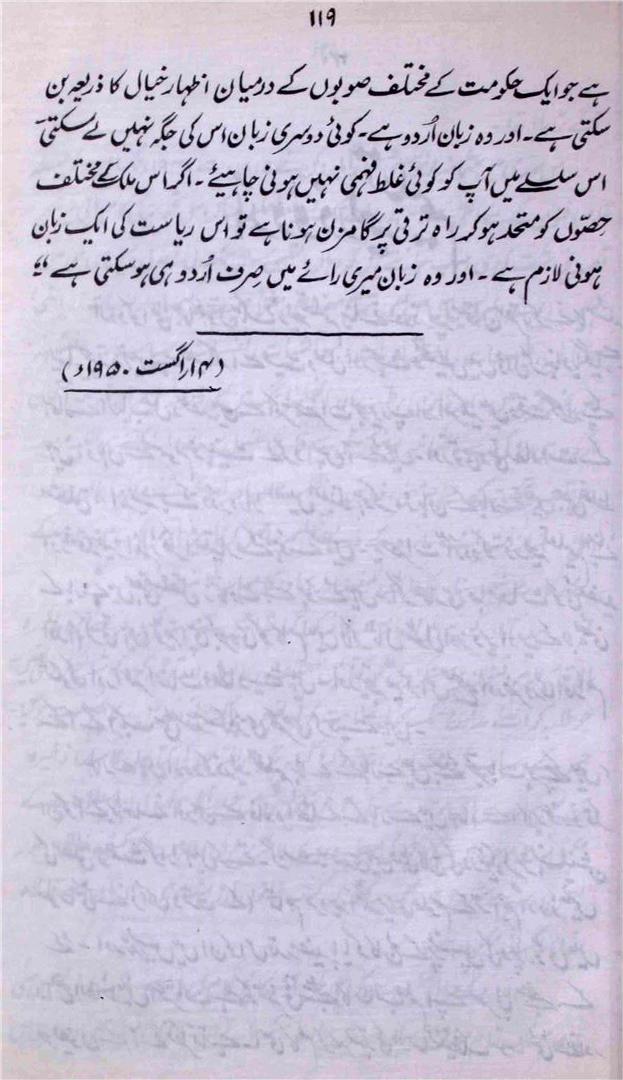 ۱۱۹
ہے جو ایک حکومت کے مختلف صوبوں کے درمیان اظہار خیال کا ذریعہ بن
سکتی ہے۔ اور وہ زبان اُردو ہے۔ کوئی دوسری زبان اس کی جگہ نہیں لے سکتی۔
اس سلسلے میں آپ کو کوئی غلط فہمی نہیں ہونی چاہیئے۔ اگر اس ملک کے مختلف
حصّوں کو متحد ہو کر راہ ترقی پر گامزن ہونا ہے تو اس ریاست کی ایک زبان
ہونی لازم ہے۔ اور وہ زبان میری رائے میں صِرف اُردو ہی ہو سکتی ہے "
(۱۴ اگست ۱۹۵۰ء)